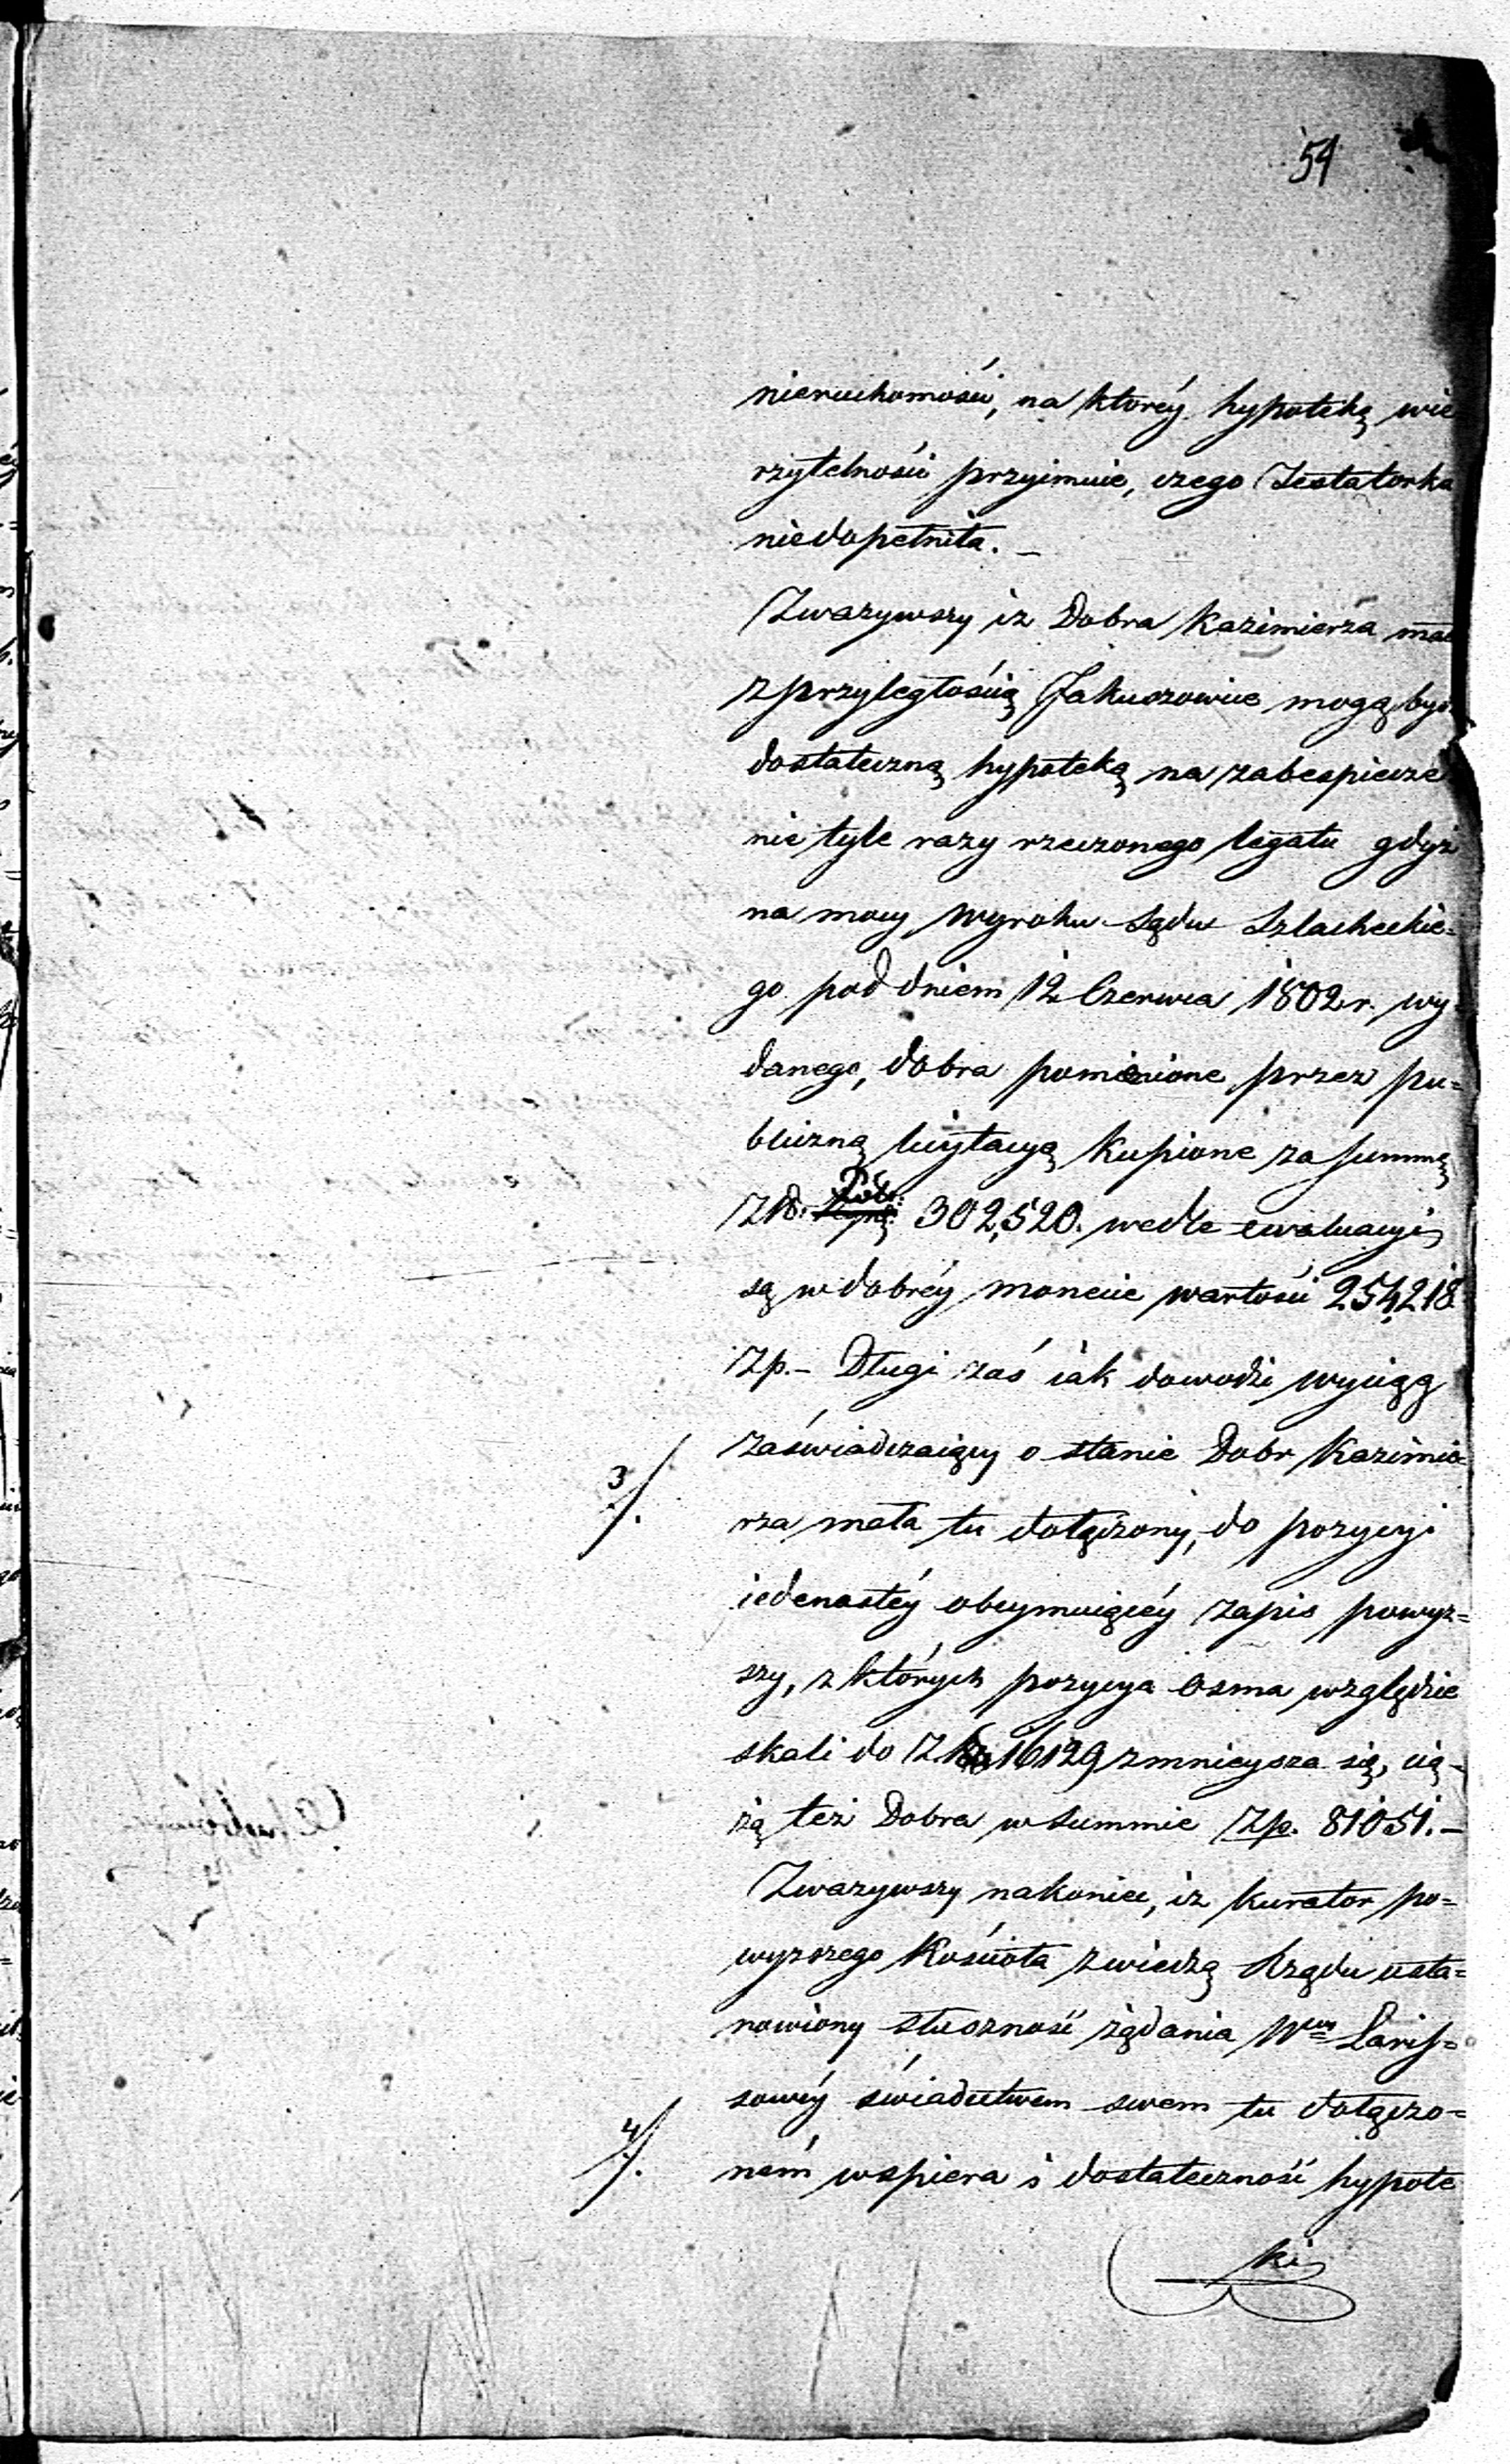 54
nieruchomości, na ktorey hypotekę wie
rzytelności przyimuie, czego Testatorka
niedopełniła. –
Zwazywszy iz Dobra Kazimierza mał
z przyległością Jakuszowice mogą być
dostateczną hypoteką na zabespiecze
nie tyle razy rzeczonego legatu gdyż
na mocy Wyroku Sądu Szlacheckie=
go pod dniem 12 Czerwca 1802 r. wy=
danego, dobra pomienione przez pu=
bliczną licytacyą kupione za summę
Zło. Pol: 302,520. wedle ewaluacyi
są w dobréy monecie wartości 254,218
Zp. – Długi zaś iak dowodzi wyciąg
zaświadczaiący o stanie Dobr Kazimie=
3/. rza mała tu dołączony, do pozycyi
iedenastéy obeymuiącéy zapis powyz=
szy, z których pozycya osma względzie
skali do 16129 zmnieysza się, cię=
żą też Dobra w Summie Zp. 81051. –
Zwazywszy nakoniec, iz kurator po=
wyzszego Kościoła z wiedzą Rządu usta=
nowiony słuszność żądania Wney Laris=
sowéy świadectwem swem tu dołączo=
4/. ném wspiera i dostateczność hypote
ki